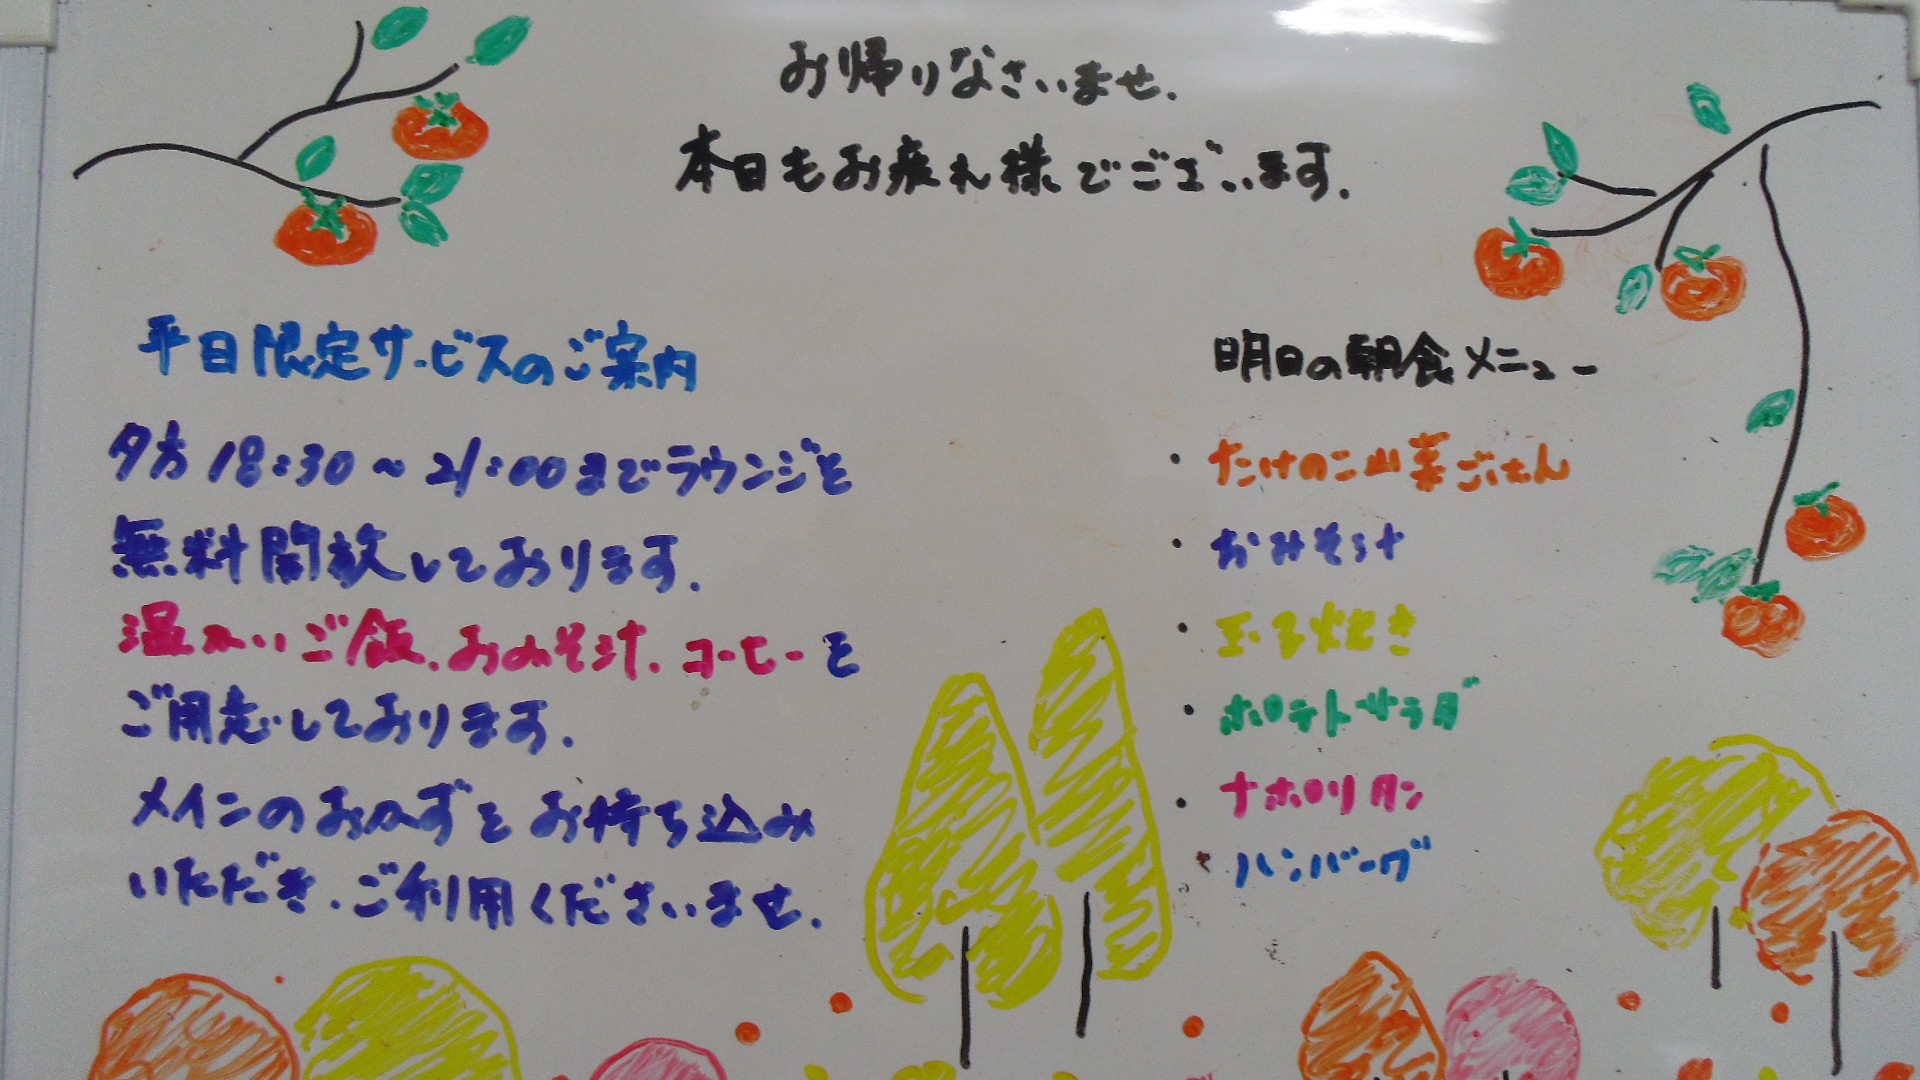 お帰りなさいませ.
本日もお疲れ様でございます.
平日限定サービスのご案内
夕方 18:30～21:00までラウンジを
無料開放しております.
温かいご飯.おみそ汁.コーヒーを
ご用意しております.
メインのおかずをお持ち込み
いただき.ご利用くださいませ.
明日の朝食メニュー
・たけのこ山菜ごはん
・おみそ汁
・玉子焼き
・ポテトサラダ
・ナポリタン
・ハンバーグ